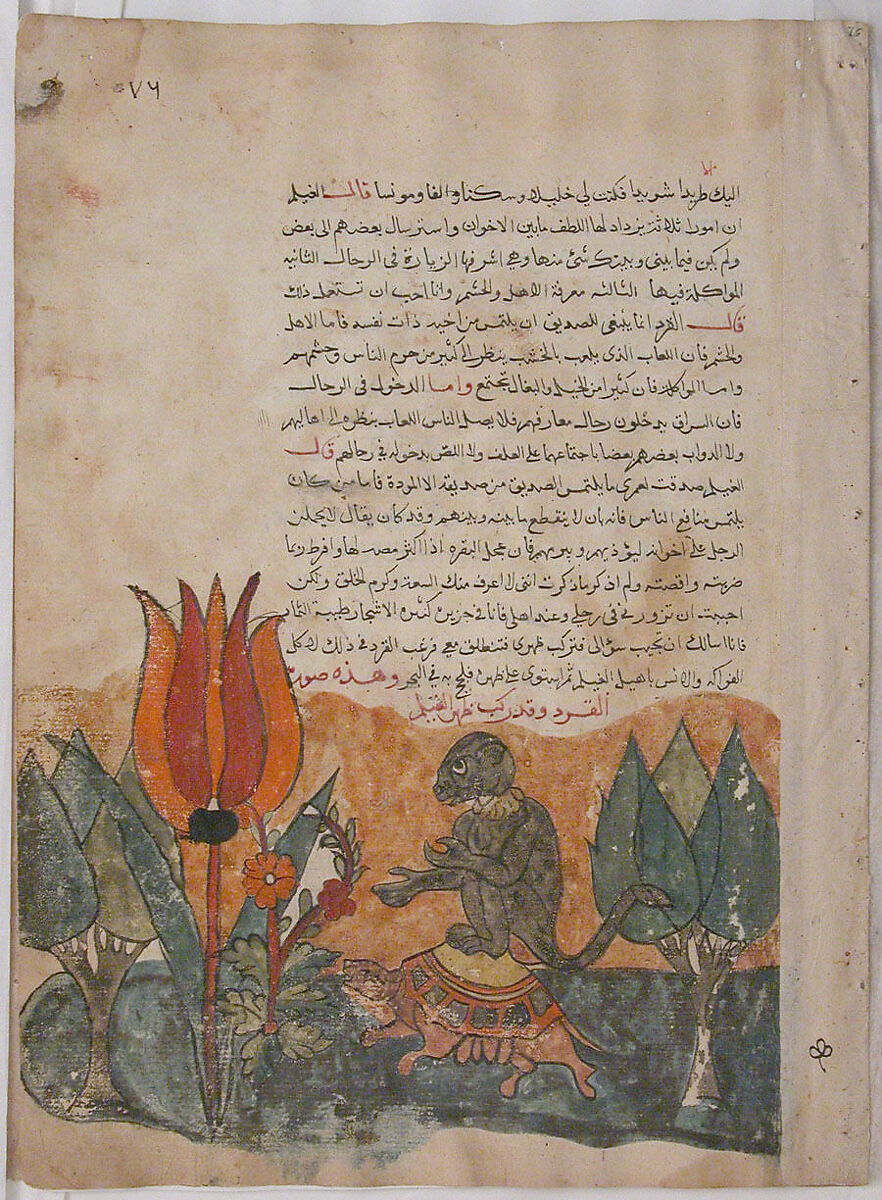 ٧٦
اليك طريدا شريدا فكنت لي خليلا وسكنا والفا ومونسا قال الغيلم
ان امورا ثلاثة يزداد لها اللطف مابين الاخوان واسترسال بعضهم الى بعض
ولم يكن فيما بيني وبينك شئ منها وهي اشرفها الزيارة في الرحال الثانيه
المواكلة فيها الثالثه معرفة الاهل والحشم وانا احب ان تستعمل ذلك
قال القرد انما ينبغي للصديق ان يلتمس من اخيه ذات نفسه فاما الاهل
والحشم فان اللعاب الذى يلعب بالخشب ينظر الى كثير من حرم الناس وحشمهم
واما المواكلة فان كثيرا من الخيل والبغال تجتمع واما الدخول في الرحال
فان السراق يدخلون رحال معارفهم فلا يصل الناس اللعاب بنظره الى اهاليهم
ولا الدواب بعضهم بعضا باجتماعهما على العلف ولا اللص بدخوله في رحالهم قال
الغيلم صدقت لعمرى ما يلتمس الصديق من صديقه الا المودة فاما من كان
يلتمس منافع الناس فانه بان لا ينقطع ما بينه وبينهم وقد كان يقال لا يحملن
الرجل على اخوانه ليؤذيهم ويبرمهم فان عجل البقره اذا اكثر مصه لها وافرط ربما
ضربته واقصته ولم اذكر ما ذكرت انني لا اعرف منك السعة وكرم الخلق ولكن
احببت ان تزورني في رحلي وعند اهلي فانا في جزيره كثيره الاشجار طيبة الثمار
فانا اسالك ان تجيب سؤالى فتركب ظهرى فتنطلق معي فرغب القرد في ذلك لاكل
الفواكه والانس باهل الغيلم ثم استوى على ظهره فلجج به في البحر وهذه صورة
القرد وقد ركب ظهر الغيلم